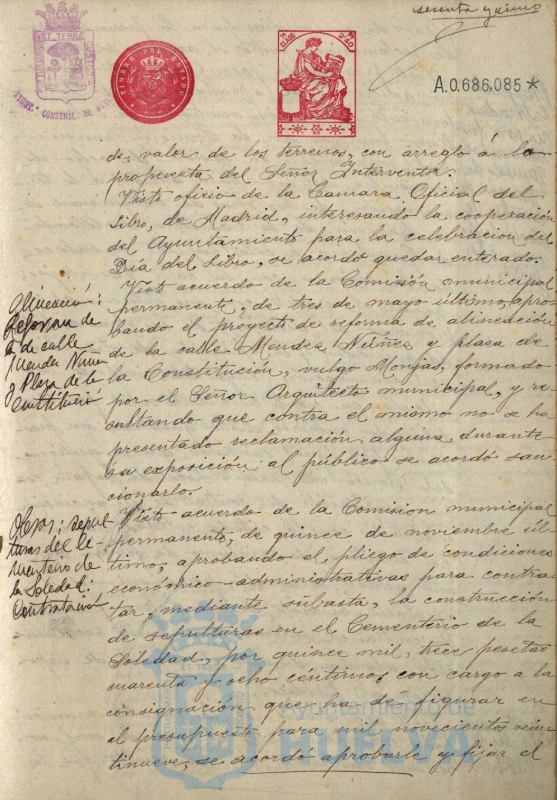 sesenta y cinco
TIMBRE DEL ESTADO
A.0.686.085*
de valor de los terrenos, con arreglo á la
propuesta del Señor Interventor.
Visto oficio de la Camara Oficial del
Libro, de Madrid, interesando la cooperación
del Ayuntamiento para la celebracion del
Día del Libro, se acordó quedar enterado.
Alineación:
Reforma de
la de calle
Mendez Nuñez
y Plaza de la
Constitución
Visto acuerdo de la Comisión municipal
permanente, de tres de mayo último, apro-
bando el proyecto de reforma de alineación
de la calle Mendez Núñez y plaza de
la Constitución, vulgo Monjas, formado
por el Señor Arquitecto municipal, y re
sultando que contra el mismo no se ha
presentado reclamación alguna durante
su exposición al público se acordó san-
cionarlo.
Obras: sepul-
turas del Ce-
menterio de
la Soledad:
Contratación
Visto acuerdo de la Comision municipal
permanente, de quince de noviembre úl-
timo, aprobando el pliego de condiciones
económico-administrativas para contra-
tar, mediante subasta, la construcción
de sepulturas en el Cementerio de la
Soledad, por quince mil, trece pesetas
cuarenta y ocho céntimos, con cargo a la
consignación que ha de figurar en
el presupuesto para mil novecientos vein-
tinueve, se acordó aprobarle y fijar el
Ayuntamiento de
HUELVA